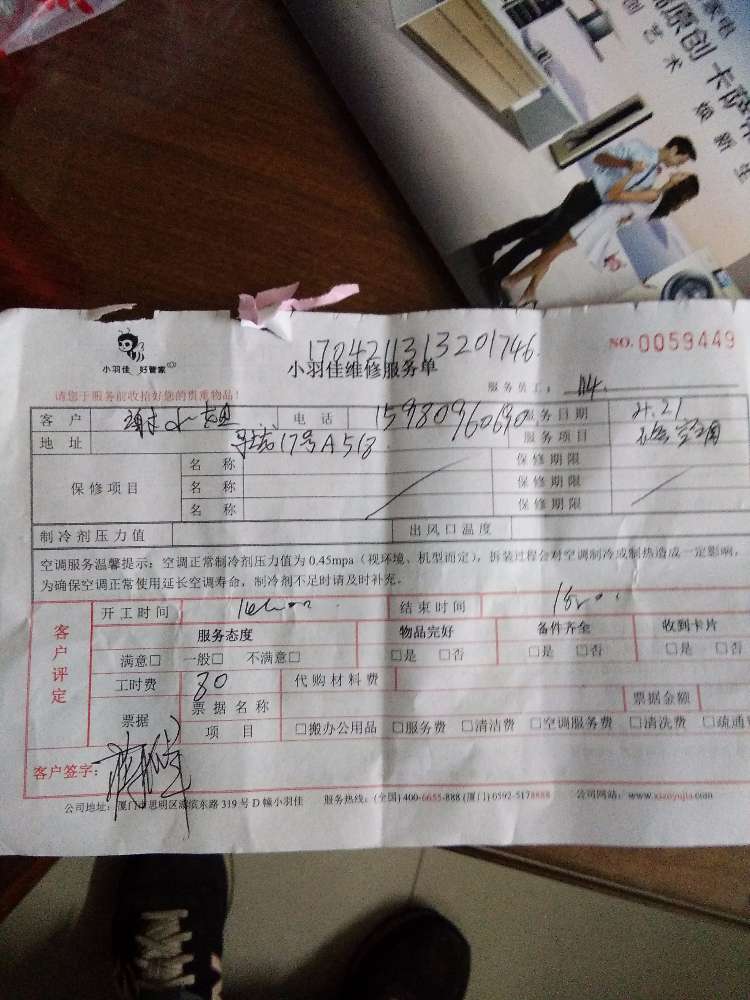 家电
原创 卡萨帝
创艺术 焕新生
170421131320 1746
NO. 0059449
小羽佳 好管家
小羽佳维修服务单
请您于服务前收拾好您的贵重物品! 服务员工: 114
客户 谢小姐 电话 15980960690 服务日期 4.21
地址 17号A518 服务项目 空调
保修项目 名称 保修期限
名称 保修期限
名称 保修期限
制冷剂压力值 出风口温度
空调服务温馨提示:空调正常制冷剂压力值为 0.45mpa(视环境、机型而定),拆装过程会对空调制冷或制热造成一定影响,
为确保空调正常使用延长空调寿命,制冷剂不足时请及时补充。
客户评定
开工时间 结束时间
服务态度 物品完好 备件齐全 收到卡片
满意□ 一般□ 不满意□ □是 □否 □是 □否 □是 □否
工时费 80 代购材料费
票据 票据名称 票据金额
项目 □搬办公用品 □服务费 □清洁费 □空调服务费 □清洗费 □疏通
客户签字:
公司地址:厦门市思明区湖滨东路 319 号 D 幢小羽佳 服务热线:(全国) 400-6655-888 (厦门) 0592-5178888 公司网站:www.xiaoyujia.com